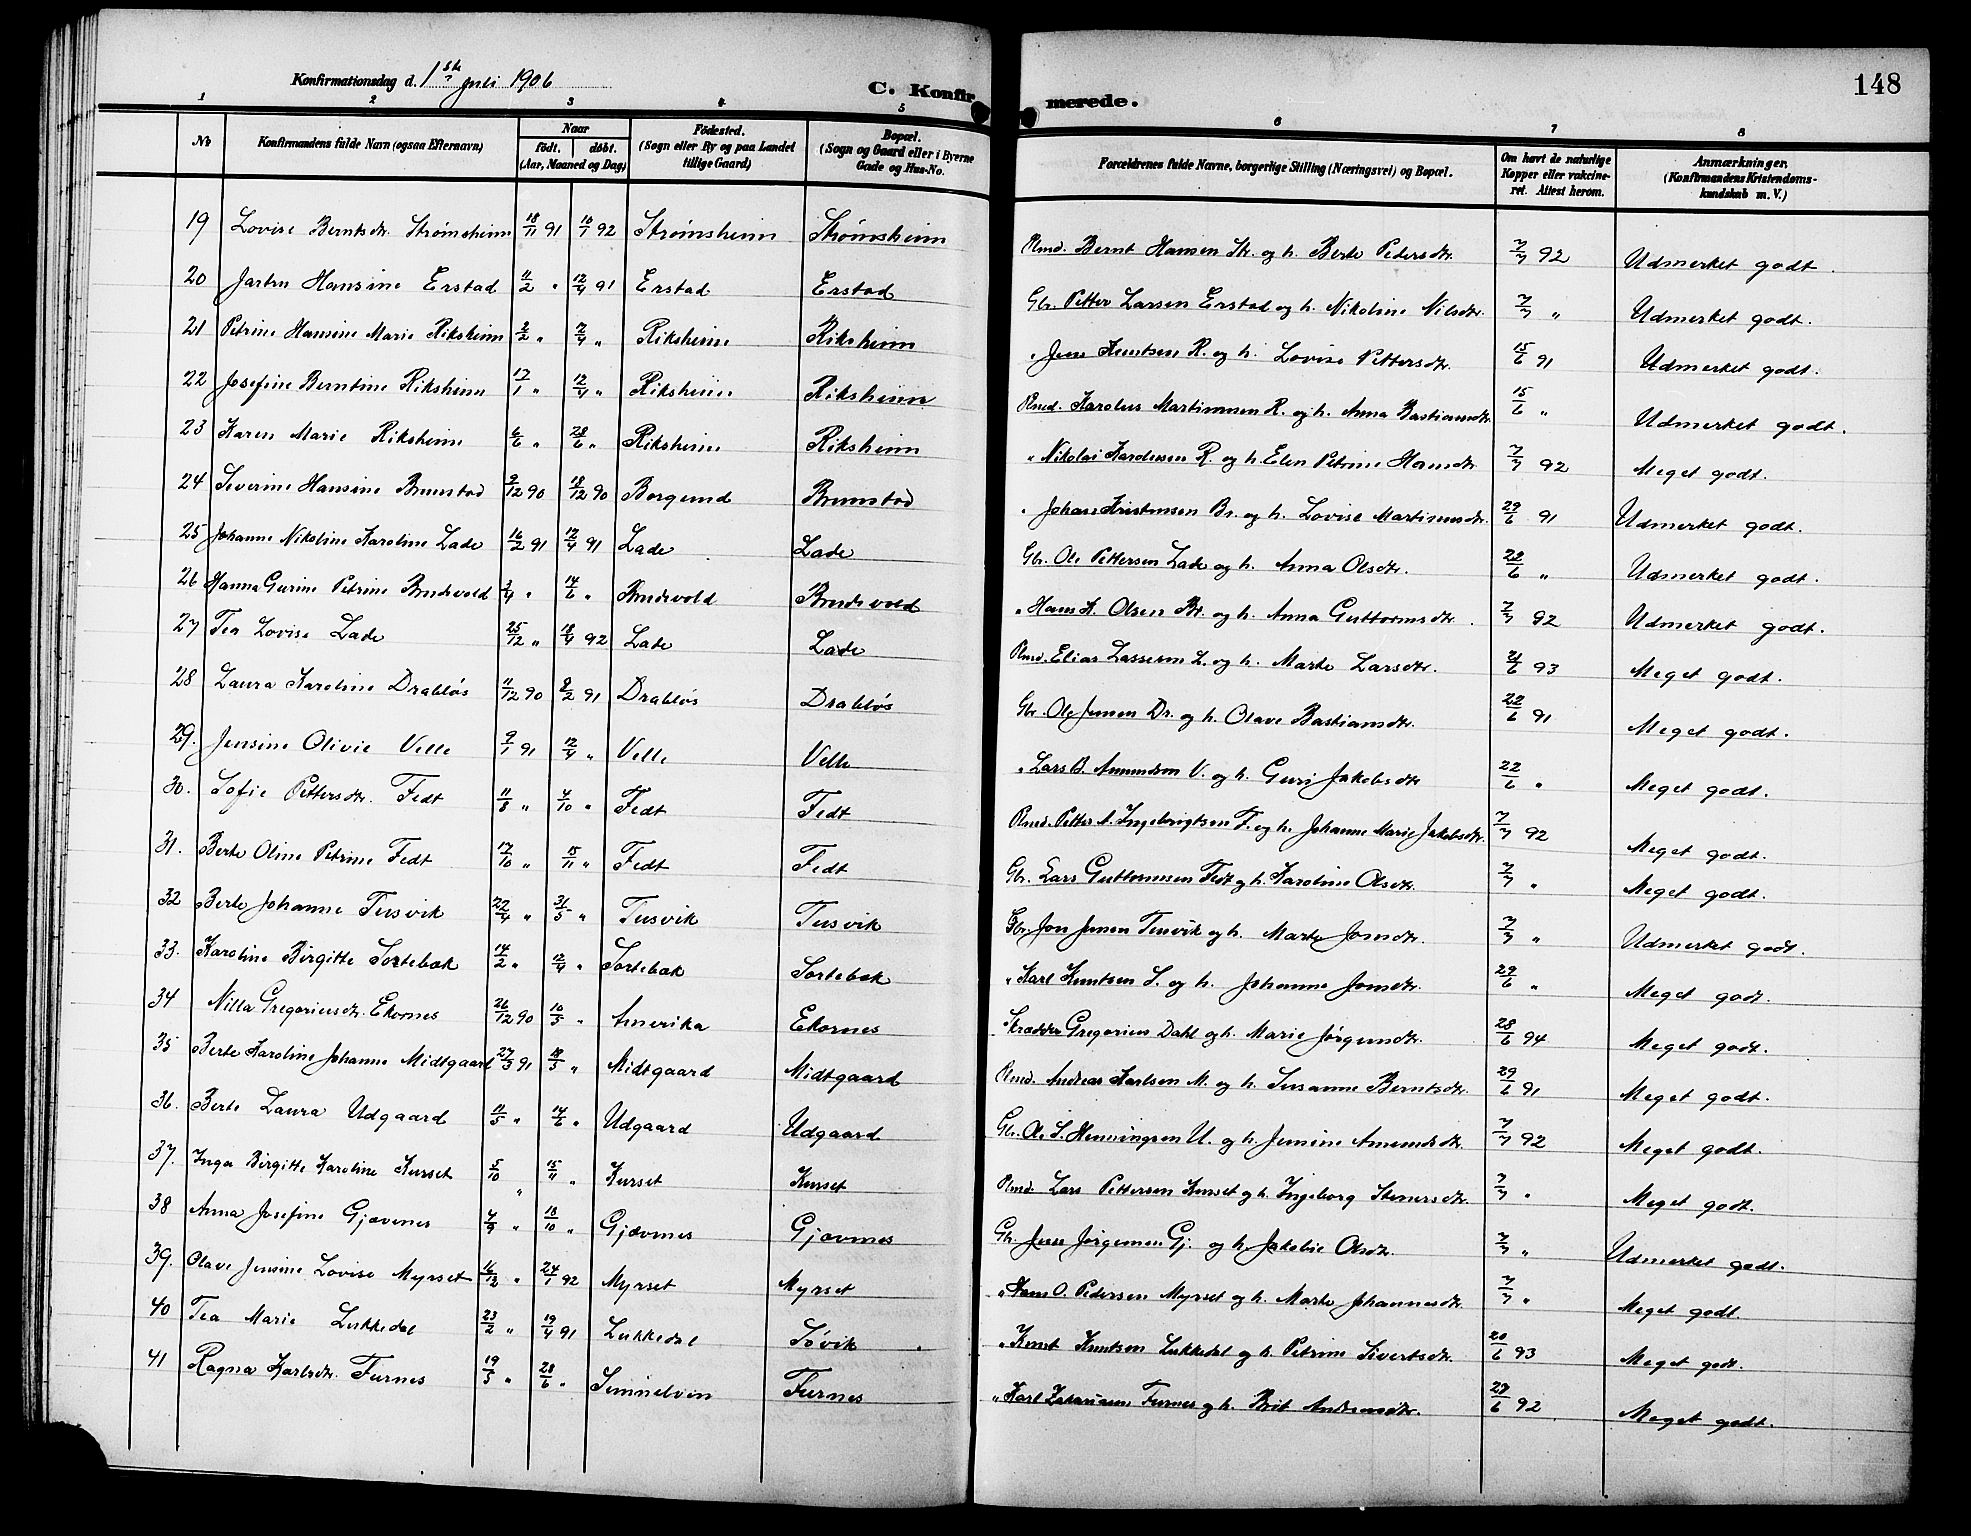 Konfirmationsdag d. 1ste Juli 1906
C. Konfirmerede.
148
1 2 3 4 5 6 7 8
No
Konfirmandens fulde Navn (ogsaa Efternavn)
Naar
født. døbt.
(Aar, Maaned og Dag)
Fødested.
(Sogn eller By og paa Landet
tillige Gaard)
Bopæl.
(Sogn og Gaard eller i Byerne
Gade og Hus-No.
Forældrenes fulde Navne, borgerlige Stilling (Næringsvei) og Bopæl.
Om havt de naturlige
Kopper eller vakcine-
ret. Attest herom.
Anmærkninger.
(Konfirmandens Kristendoms-
kundskab m. V.)
19 Lovise Berntsdr. Strømsheim 18/11 91 10/1 92 Strømsheim Strømsheim Rmd. Bernt Hansen Str. og h. Berte Pedersdtr. 7/7 92 Udmerket godt.
20 Hansine Erstad 11/2 " 12/4 91 Erstad Erstad Gbr. Petter Larsen Erstad og h. Nikoline Nilsdtr. 7/7 " Udmerket godt.
21 Petrine Hansine Marie Riksheim 2/2 " 2/4 " Riksheim Riksheim " Jens Knutsen R. og h. Lovise Pettersdtr. 15/6 91 Udmerket godt.
22 Josefine Berntine Riksheim 17/1 " 12/4 " Riksheim Riksheim Rmd. Karolus Martinusen R. og h. Anna Bastiansdtr. 15/6 " Udmerket godt.
23 Karen Marie Riksheim 6/6 " 28/6 " Riksheim Riksheim " Nikolai Karolusen R. og h. Elen Petrine Hansdtr. 7/7 92 Meget godt.
24 Severine Hansine Brunstad 9/12 90 18/12 90 Borgund Brunstad " Johan Kristensen Br. og h. Lovise Martinusdtr. 29/6 91 Udmerket godt.
25 Johanne Nikoline Karoline Lade 16/2 91 12/4 91 Lade Lade Gbr. Ole Pettersen Lade og h. Anna Olsdtr. 22/6 " Udmerket godt.
26 Hanna Gurine Petrine Brudevold 3/4 " 14/6 " Brudevold Brudevold " Hans K. Olsen Br. og h. Anna Guttormsdtr. 7/7 92 Udmerket godt.
27 Tea Lovise Lade 25/12 " 18/4 92 Lade Lade Rmd. Elias Lassesen L. og h. Marte Larsdtr. 21/6 93 Meget godt.
28 Laura Karoline Drabløs 11/12 90 8/2 91 Drabløs Drabløs Gbr. Ole Jensen Dr. og h. Olave Bastiansdtr. 22/6 91 Meget godt.
29. Jensine Olivie Velle 9/1 91 12/4 " Velle Velle " Lars B. Amundsen V. og h. Guri Jakobsdtr. 22/6 " Meget godt.
30. Sofie Pettersdtr. Fedt 11/8 " 4/10 " Fedt Fedt Rmd. Petter A. Ingebrigtsen F. og h. Johanne Marie Jakobsdtr. 7/7 92 Meget godt.
31. Berte Oline Petrine Fedt 17/10 " 15/11 " Fedt Fedt Gbr. Lars Guttormsen Fedt og h. Karoline Olsdtr. 7/7 " Meget godt.
32 Berte Johanne Tusvik 22/4 " 31/5 " Tusvik Tusvik Gbr. Jon Jensen Tusvik og h. Marte Jonsdtr. 7/7 " Udmerket godt.
33. Karoline Birgitte Sortebæk 14/2 " 12/4 " Sortebæk Sortebæk " Karl Knutsen S. og h. Johanne Jonsdtr. 29/6 " Meget godt.
34 Nilla Gregoriusdtr. Ekornes 26/12 90 10/5 " Amerika Ekornes Skrædder Gregorius Dahl og h. Marie Jørgensdtr. 28/6 94 Meget godt.
35 Berte Karoline Johanne Midtgaard 27/3 91 /5 " Midtgaard Midtgaard Rmd. Andreas Karlsen M. og h. Susanne Berntsdtr. 29/6 91 Meget godt.
36. Berte Laura Udgaard 11/5 " 14/6 " Udgaard Udgaard Gbr. O. S. Henningsen U. og h. Jensine Amundsdtr. 7/7 92 Meget godt.
37. Inga Birgitte Karoline Kurset 5/10 " 15/11 " Kurset Kurset Rmd. Lars Pettersen Kurset og h. Ingeborg Steinersdtr. 7/7 " Meget godt.
38 Anna Josefine Gjævenes 4/9 " 18/10 " Gjævnes Gjævnes Gbr. Jens Jørgensen Gj. og h. Jakobie Olsdtr. 7/7 " Udmerket godt.
39. Olave Jensine Lovise Myrset 16/12 " 24/1 92 Myrset Myrset " Hans O. Pedersen Myrset og h. Marte Johannesdtr. 7/7 " Meget godt.
40 Tea Marie Lukkedal 23/2 " 19/4 91 Lukkedal Søvik " Knut Knutsen Lukkedal og h. Petrine Sivertsdtr. 20/6 93 Meget godt.
41 Ragna Karlsdtr. Furnes 19/5 " 28/6 " Sunnelven Furnes " Karl Zakariasen Furnes og h. Brit Andreasdtr. 28/6 92 Meget godt.